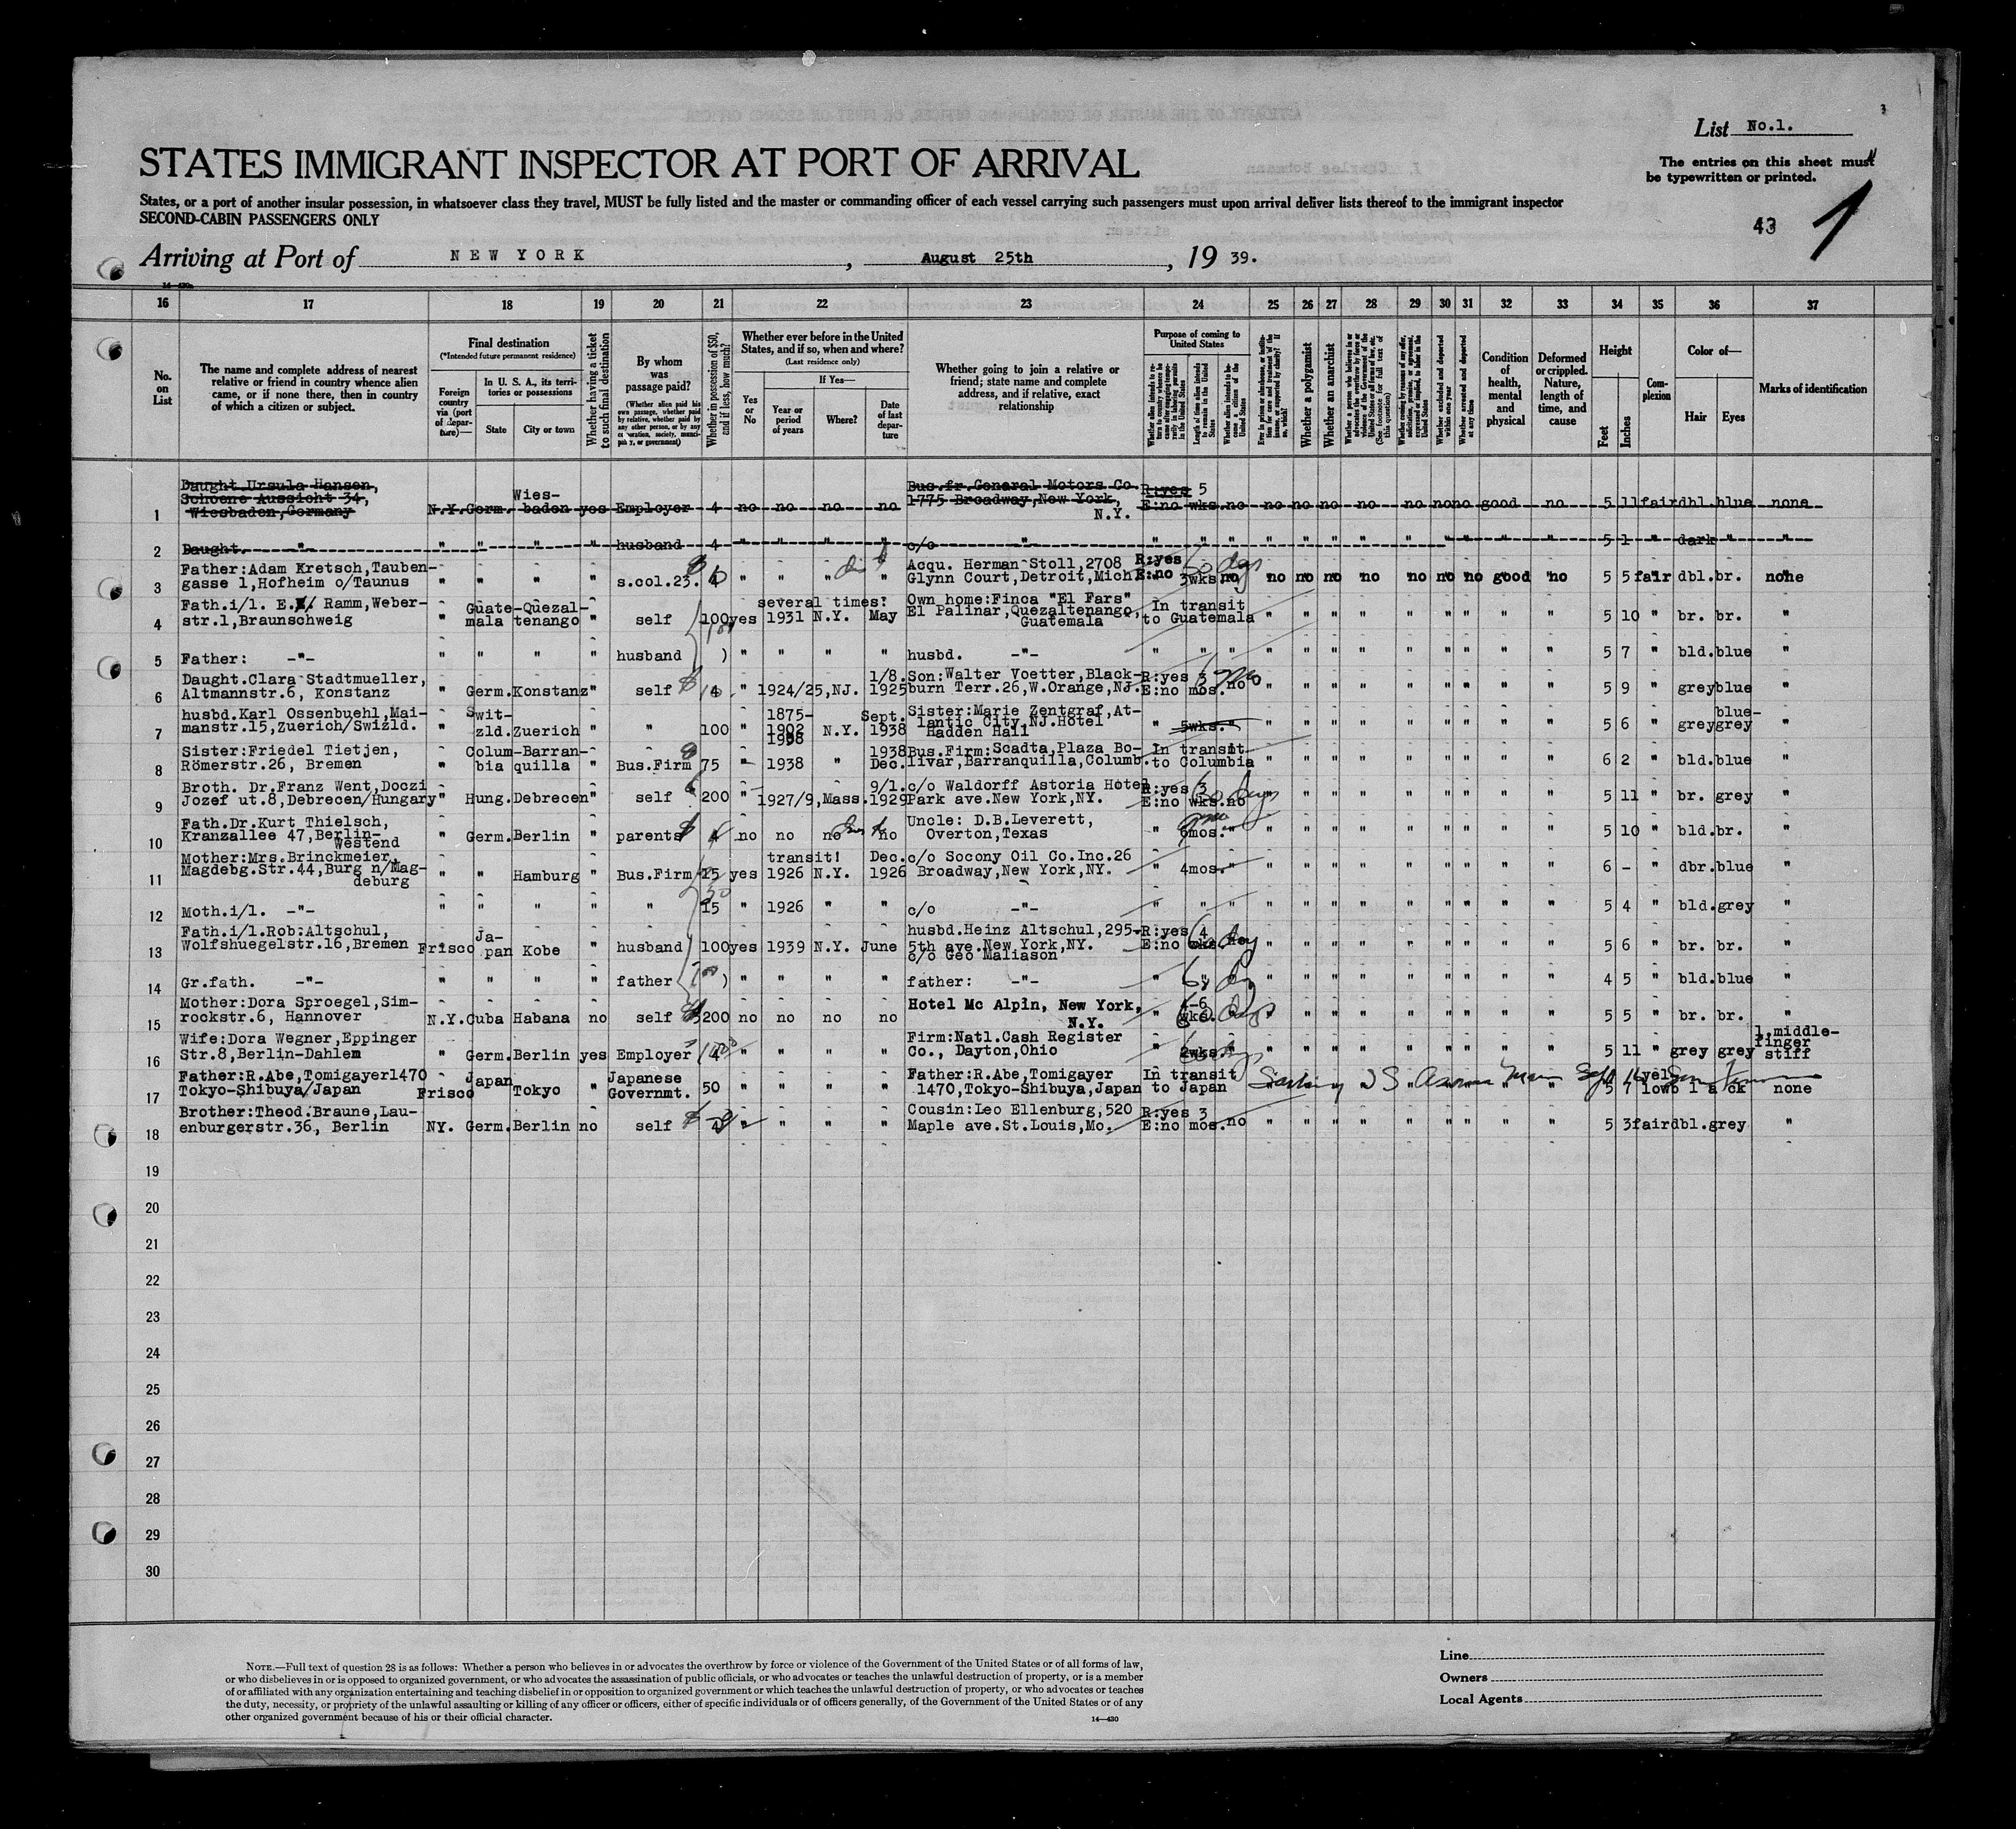 List No.1.
STATES IMMIGRANT INSPECTOR AT PORT OF ARRIVAL
The entries on this sheet must
be typewritten or printed.
States, or a port of another insular possession, in whatsoever class they travel, MUST be fully listed and the master or commanding officer of each vessel carrying such passengers must upon arrival deliver lists thereof to the immigrant inspector
SECOND-CABIN PASSENGERS ONLY
43 1
Arriving at Port of NEW YORK, August 25th, 19 39.
16 17 18 19 20 21 22 23 24 25 26 27 28 29 30 31 32 33 34 35 36 37
No. on List
The name and complete address of nearest relative or friend in country whence alien came, or if none there, then in country of which a citizen or subject.
Final destination
(*Intended future permanent residence)
Foreign country via (port of departure)—
In U. S. A., its territories or possessions
State
City or town
Whether having a ticket to such final destination
By whom was passage paid?
(Whether alien paid his own passage, whether paid by relative, whether paid by any other person, or by any corporation, society, municipality, or government)
Whether in possession of $50, and if less, how much?
Whether ever before in the United States, and if so, when and where?
(Last residence only)
Yes or No
If Yes—
Year or period of years
Where?
Date of last departure
Whether going to join a relative or friend; state name and complete address, and if relative, exact relationship
Purpose of coming to United States
Length of time alien intends to remain in the United States
Whether alien intends to become a citizen of the United States
Whether a polygamist
Whether an anarchist
Whether excluded and deported within one year
Whether arrested and deported at any time
Condition of health, mental and physical
Deformed or crippled. Nature, length of time, and cause
Height
Feet
Inches
Complexion
Color of—
Hair
Eyes
Marks of identification
1 Daught.Ursula Hansen, Schoene Aussicht 34, Wiesbaden,Germany N.Y. Germ. Wiesbaden yes Employer 4 no no no no Bus.fr.General Motors Co. 1775 Broadway,New York, N.Y. R:yes E:no 5 wks. no no no no no no no no good no 5 11 fair dbl. blue none
2 Daught. -"- " " " " husband 4 " " " " c/o -"- " " " " " " " " " " " " 5 1 " dark " "
3 Father:Adam Kretsch,Taubengasse 1,Hofheim o/Taunus " " " " s.col.23. 4 " " " " Acqu. Herman Stoll,2708 Glynn Court,Detroit,Mich R:yes E:no 3wks no no no no no no no no good no 5 5 fair dbl. br. none
4 Fath.i/l. E. Ramm,Weberstr.1,Braunschweig " Guatemala Quezaltenango " self 100 yes several times: 1931 N.Y. May Own home:Finca "El Fars" El Palinar,Quezaltenango, Guatemala In transit to Guatemala " " " " " " " " " 5 10 " br. br. "
5 Father: -"- " " " " husband ) " " " " husbd. -"- " " " " " " " " " " " " 5 7 " bld. blue "
6 Daught.Clara Stadtmueller, Altmannstr.6, Konstanz " Germ. Konstanz " self 4 " 1924/25,NJ. 1/8. 1925 Son:Walter Voetter,Blackburn Terr.26,W.Orange,NJ. R:yes E:no 3 mos. no " " " " " " " " " 5 9 " grey blue "
7 husbd.Karl Ossenbuehl,Maimanstr.15,Zuerich/Swizld. " Switzld. Zuerich " " 100 " 1875-1902 1938 N.Y. Sept. 1938 Sister:Marie Zentgraf,Atlantic City,NJ.Hotel Hadden Hall " 5wks. " " " " " " " " " " 5 6 " grey blue-grey "
8 Sister:Friedel Tietjen, Römerstr.26, Bremen " Columbia Barranquilla " Bus.Firm 75 " 1938 " 1938 Dec. Bus.Firm:Scadta,Plaza Bolivar,Barranquilla,Columb. In transit to Columbia " " " " " " " " " 6 2 " bld. blue "
9 Broth. Dr.Franz Went,Doczi Jozef ut.8,Debrecen/Hungary " Hung. Debrecen " self 200 " 1927/9,Mass. 9/1. 1929 c/o Waldorff Astoria Hotel Park ave.New York,NY. R:yes E:no 3 wks. no " " " " " " " " " 5 11 " br. grey "
10 Fath.Dr.Kurt Thielsch, Kranzallee 47,Berlin-Westend " Germ. Berlin " parents 4 no no no no Uncle: D.B.Leverett, Overton,Texas " 6mos. " " " " " " " " " " 5 10 " bld. br. "
11 Mother:Mrs.Brinckmeier, Magdebg.Str.44,Burg n/Magdeburg " " Hamburg " Bus.Firm 15 yes transit! 1926 N.Y. Dec. 1926 c/o Socony Oil Co.Inc.26 Broadway,New York,NY. " 4mos. " " " " " " " " " " 6 - " dbr. blue "
12 Moth.i/l. -"- " " " " " 15 " 1926 " " c/o -"- " " " " " " " " " " " " 5 4 " bld. grey "
13 Fath.i/l.Rob:Altschul, Wolfshuegelstr.16,Bremen Frisco Japan Kobe " husband 100 yes 1939 N.Y. June husbd.Heinz Altschul,295-5th ave.New York,NY. c/o Geo Maliason R:yes E:no 4 wks " " " " " " " " " 5 6 " br. br. "
14 Gr.fath. -"- " " " " father ) " " " " father: -"- " " " " " " " " " " " 4 5 " bld. blue "
15 Mother:Dora Sproegel,Simrockstr.6, Hannover N.Y. Cuba Habana no self 200 no no no no Hotel Mc Alpin, New York, N.Y. " 4-6 wks. " " " " " " " " " 5 5 " br. br. "
16 Wife:Dora Wegner,Eppinger Str.8,Berlin-Dahlem " Germ. Berlin yes Employer 4 " " " " Firm:Natl.Cash Register Co., Dayton,Ohio " 2wks. " " " " " " " " " " 5 11 " grey grey l.middle-finger stiff
17 Father:R.Abe,Tomigaye1470 Tokyo-Shibuya/Japan Frisco Japan Tokyo " Japanese Governmt. 50 " " " " Father:R.Abe,Tomigaye 1470,Tokyo-Shibuya,Japan In transit to Japan 5 7 yellow none
18 Brother:Theod.Braune,Lauenburgerstr.36, Berlin NY. Germ. Berlin no self 4 " " " " Cousin:Leo Ellenburg,520 Maple ave.St.Louis,Mo. R:yes E:no 3 mos. no " " " " " " " " " 5 3 fair dbl. grey "
19
20
21
22
23
24
25
26
27
28
29
30
NOTE.—Full text of question 28 is as follows: Whether a person who believes in or advocates the overthrow by force or violence of the Government of the United States or of all forms of law,
or who disbelieves in or is opposed to organized government, or who advocates the assassination of public officials, or who advocates or teaches the unlawful destruction of property, or is a member
of or affiliated with any organization entertaining and teaching disbelief in or opposition to organized government or which teaches the unlawful destruction of property, or who advocates or teaches
the duty, necessity, or propriety of the unlawful assaulting or killing of any officer or officers, either of specific individuals or of officers generally, of the Government of the United States or of any
other organized government because of his or their official character.
14—430
Line
Owners
Local Agents